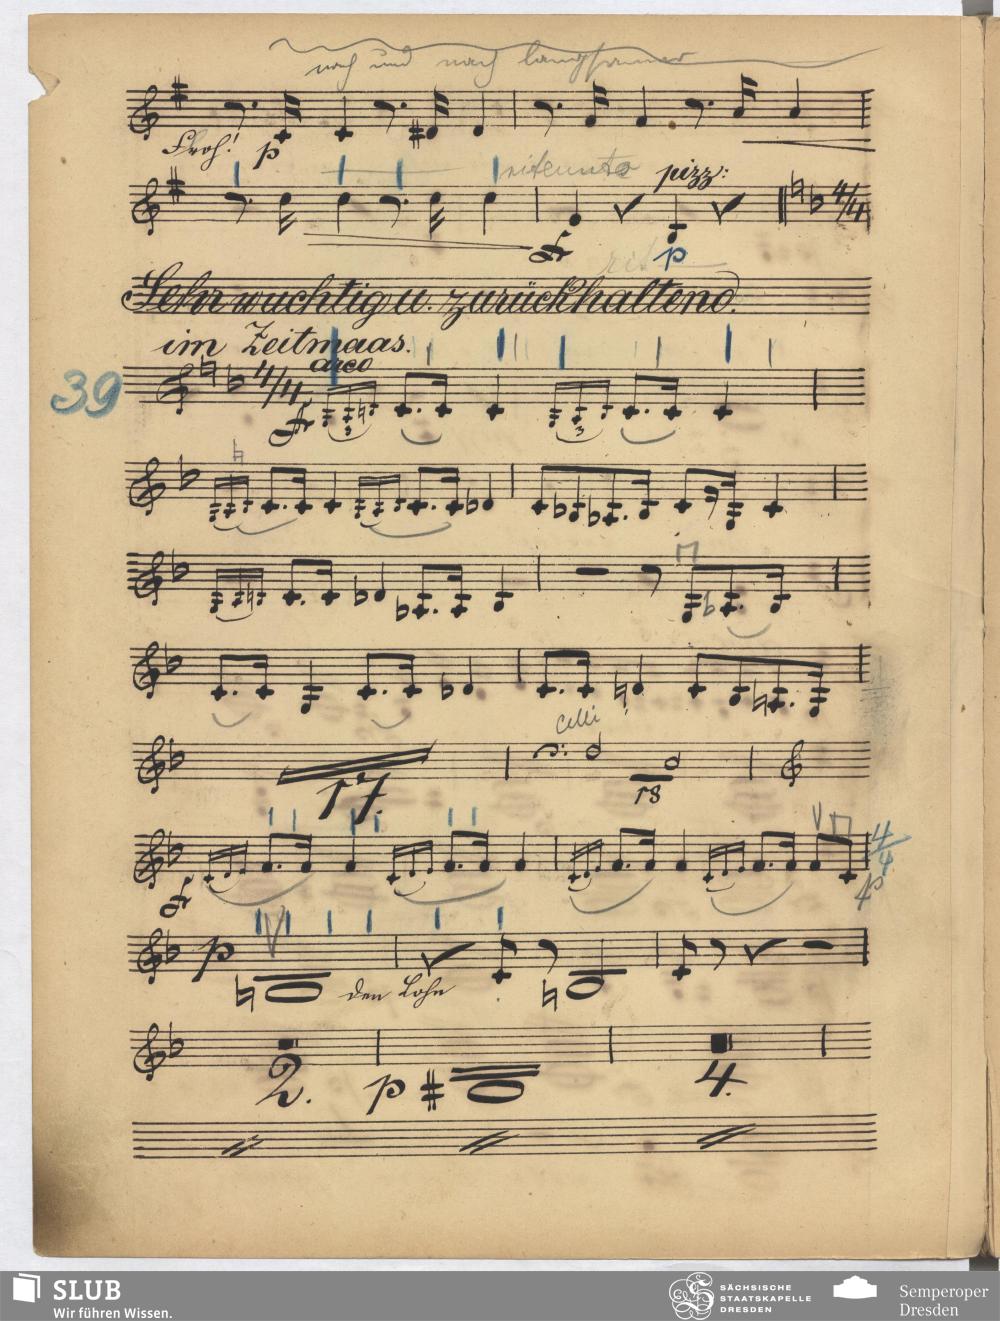 nach und nach langsamer
Froh!
p
ritenuto
pizz:
4/4
p
rit
Sehr wuchtig u. zurückhaltend.
im Zeitmaas.
arco
39
4/4
f
3
3
Celli
17.
18
4/4
f
p
p
den Lohn
2.
p
4.
SLUB
Wir führen Wissen.
SÄCHSISCHE
STAATSKAPELLE
DRESDEN
Semperoper
Dresden